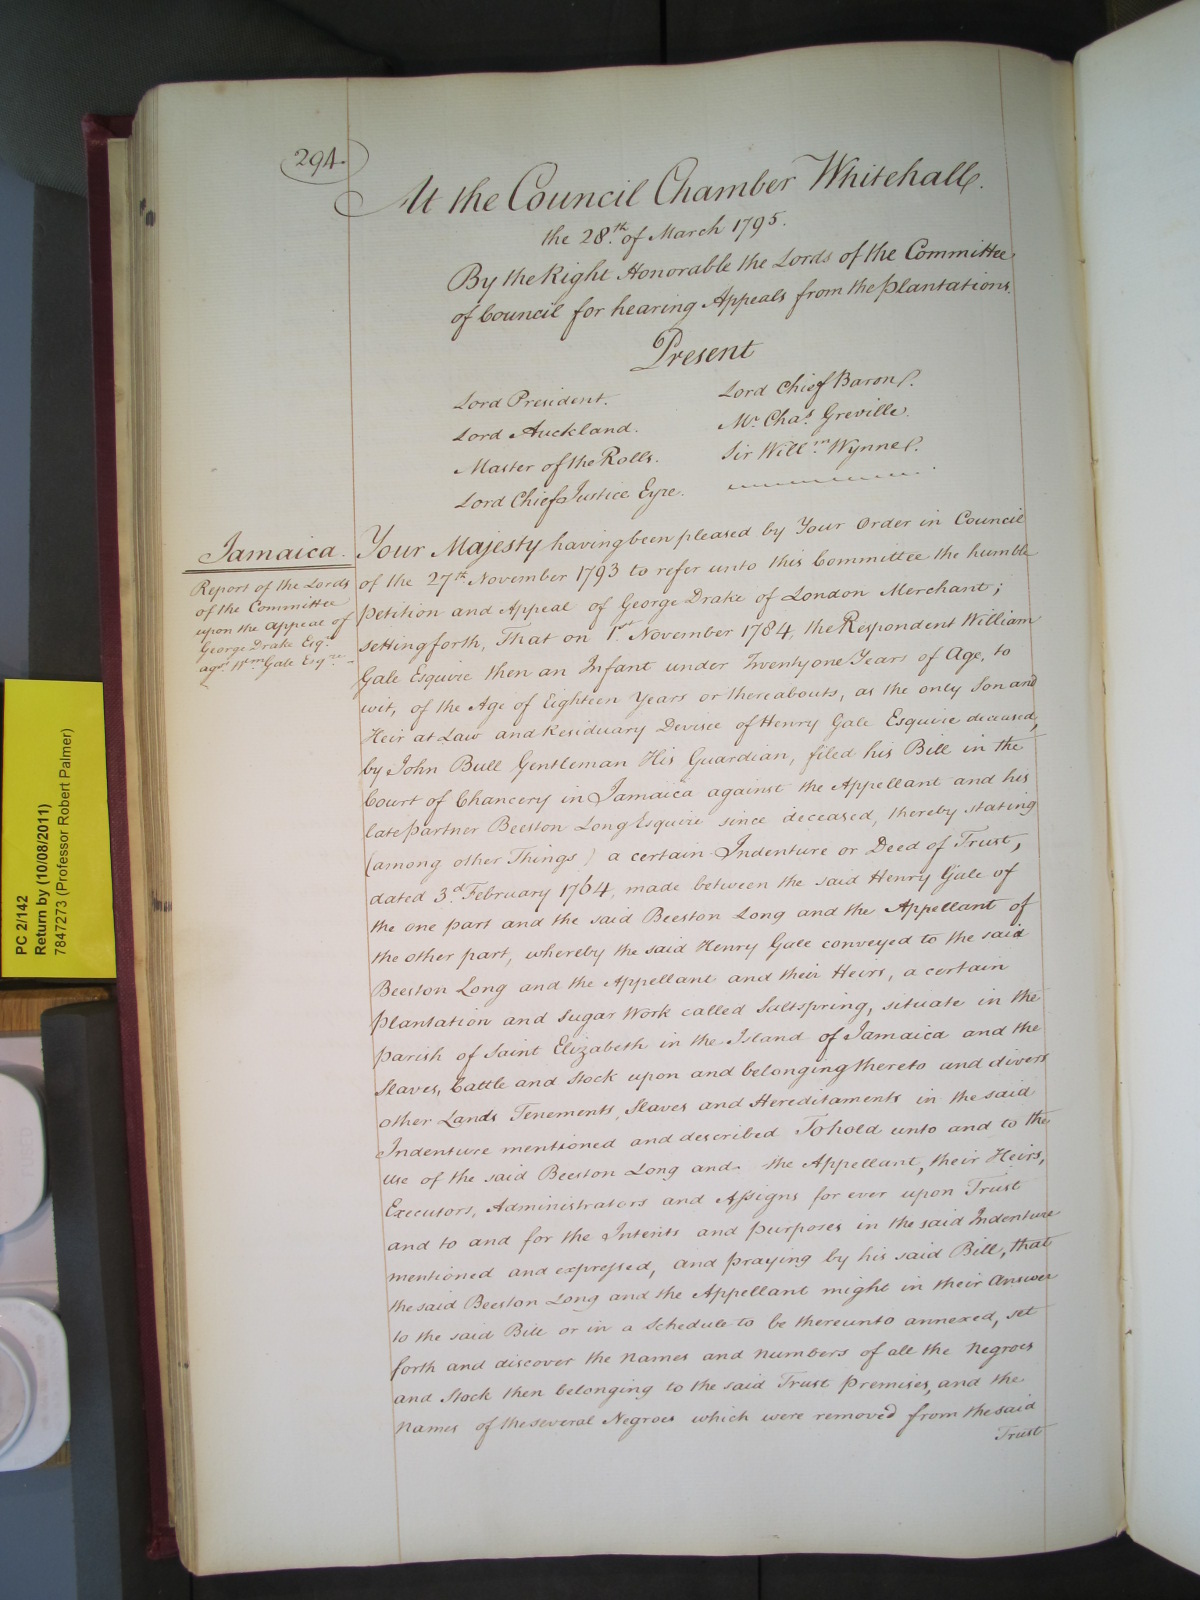 294.
At the Council Chamber Whitehall.
the 28.th of March 1795.
By the Right Honorable the Lords of the Committee
of Council for hearing Appeals from the Plantations.
Present
Lord President.
Lord Auckland.
Master of the Rolls.
Lord Chief Justice Eyre.
Lord Chief Baron.
Mr. Chas. Greville.
Sir Willm. Wynne.
Jamaica.
Report of the Lords
of the Committee
upon the Appeal of
George Drake Esqr.
agt. Wm. Gale Esqre.
Your Majesty having been pleased by Your Order in Council
of the 27th November 1793 to refer unto this Committee the humble
Petition and Appeal of George Drake of London Merchant;
setting forth, That on 1st November 1784, the Respondent William
Gale Esquire then an Infant under Twenty one Years of Age, to
wit, of the Age of Eighteen Years or thereabouts, as the only Son and
Heir at Law and Residuary Devisee of Henry Gale Esquire deceased,
by John Bull Gentleman His Guardian, filed his Bill in the
Court of Chancery in Jamaica against the Appellant and his
late Partner Beeston Long Esquire since deceased, thereby stating
(among other Things) a certain Indenture or Deed of Trust,
dated 3d. February 1764, made between the said Henry Gale of
the one part and the said Beeston Long and the Appellant of
the other part, whereby the said Henry Gale conveyed to the said
Beeston Long and the Appellant and their Heirs, a certain
Plantation and Sugar Work called Saltspring, situate in the
Parish of Saint Elizabeth in the Island of Jamaica and the
Slaves, Cattle and Stock upon and belonging thereto and divers
other Lands Tenements, Slaves and Hereditaments in the said
Indenture mentioned and described To hold unto and to the
use of the said Beeston Long and the Appellant, their Heirs,
Executors, Administrators and Assigns for ever upon Trust
and to and for the Intents and Purposes in the said Indenture
mentioned and expressed, and praying by his said Bill, that
the said Beeston Long and the Appellant might in their Answer
to the said Bill or in a Schedule to be thereunto annexed, set
forth and discover the Names and Numbers of all the Negroes
and Stock then belonging to the said Trust Premises, and the
Names of the several Negroes which were removed from the said
Trust
PC 2/142
Return by (10/08/2011)
7847273 (Professor Robert Palmer)